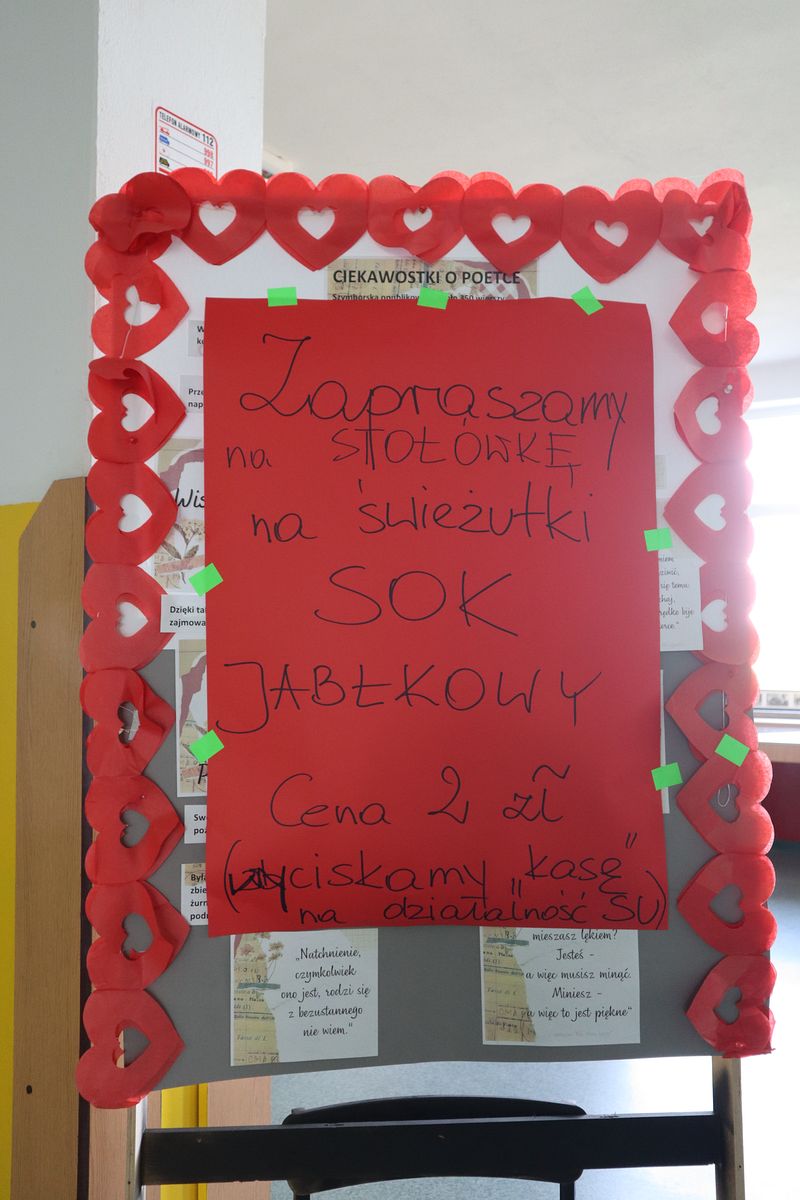 TELEFON ALARMOWY 112
998
997
CIEKAWOSTKI O POETCE
Szymborska
350 wierszy
Zapraszamy
na STOŁÓWKĘ
na świeżutki
SOK
JABŁKOWY
Cena 2 zł
(wyciskamy „kasę”
na działalność SU)
Dzięki
„Natchnienie,
czymkolwiek
ono jest, rodzi się
z bezustannego
nie wiem.”
mieszasz lękiem?
Jesteś -
a więc musisz minąć.
Miniesz -
a więc to jest piękne”